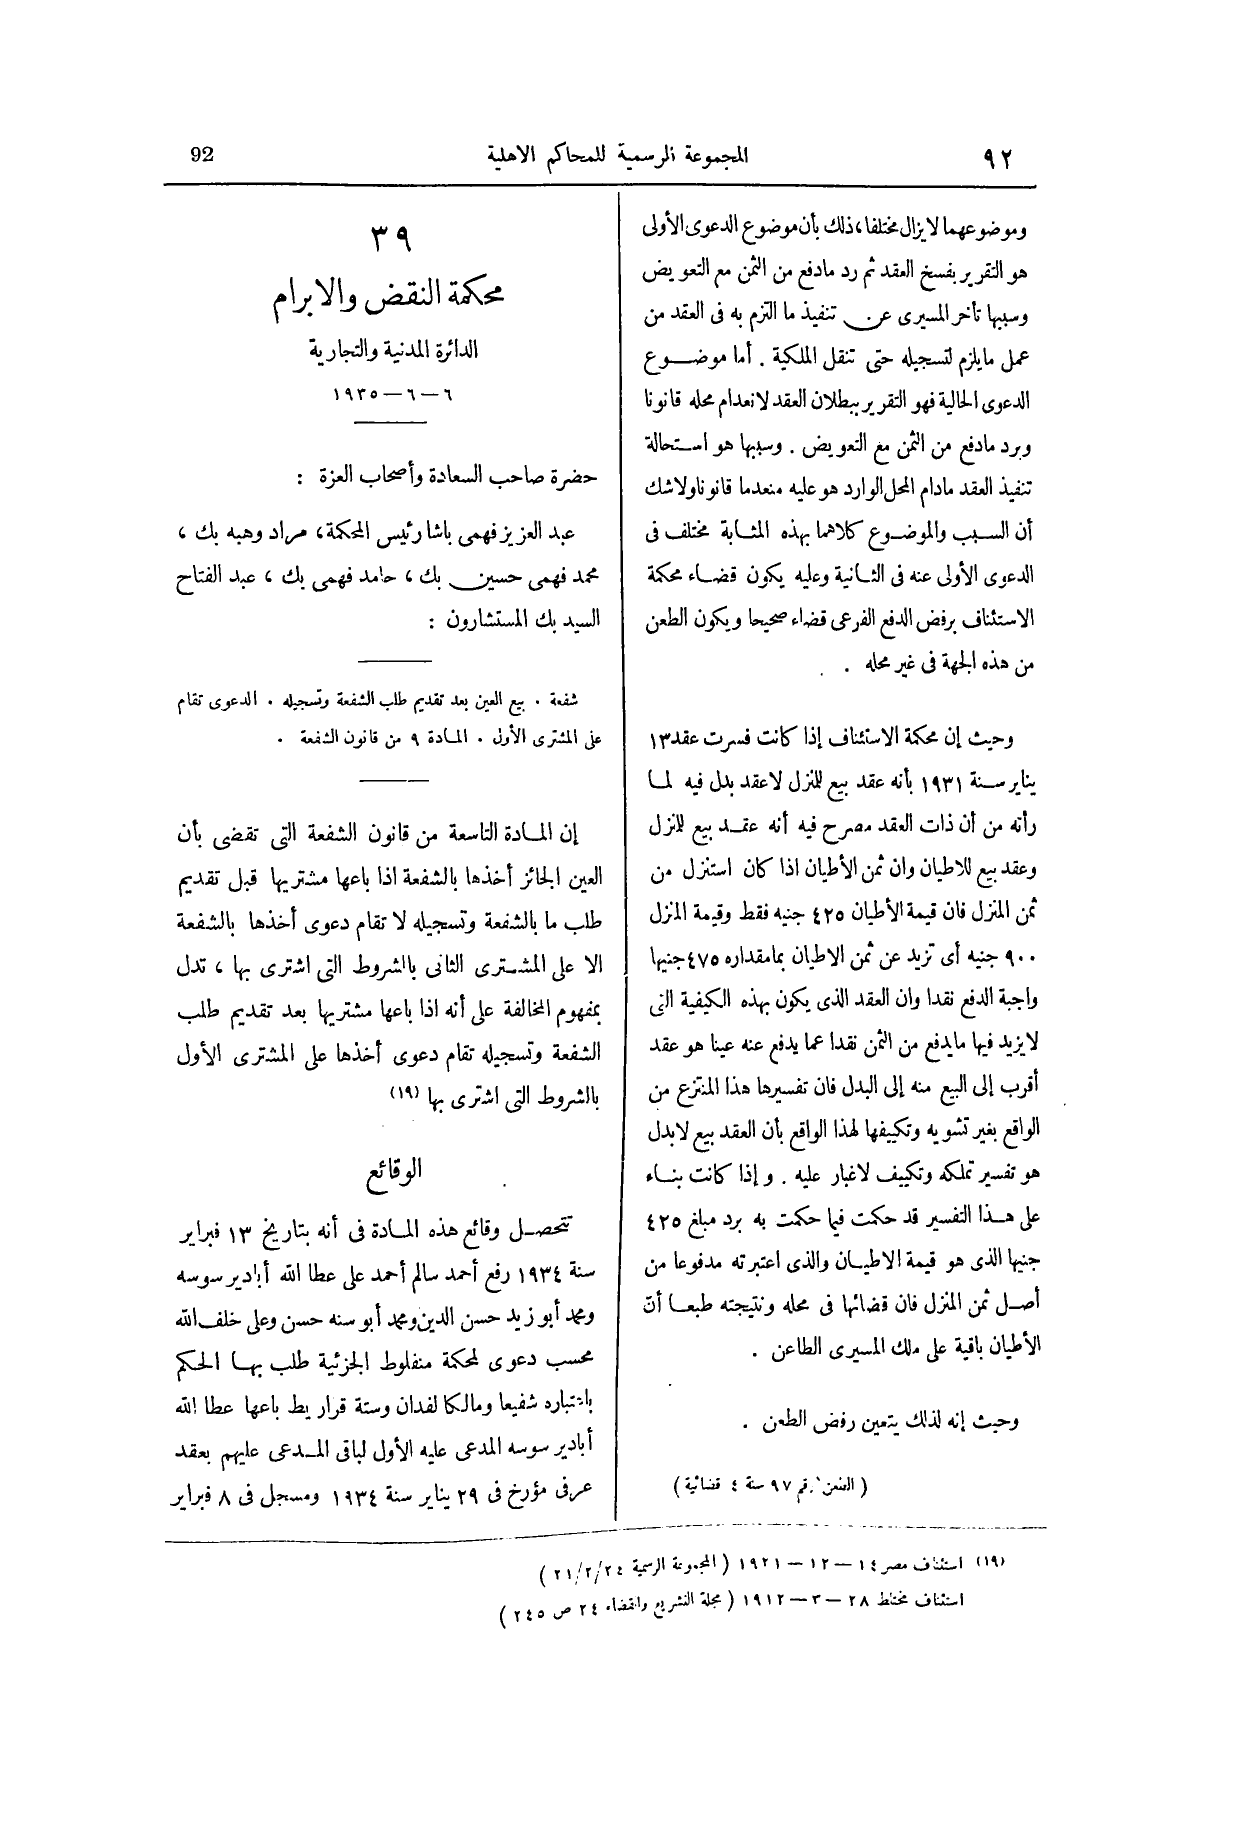 ٩٢
المجموعة الرسمية للمحاكم الاهلية
92
وموضوعهما لا يزال مختلفا، ذلك بأن موضوع الدعوى الأولى
هو التقرير بفسخ العقد ثم رد مادفع من الثمن مع التعويض
وسببها تأخر المسيرى عن تنفيذ ما التزم به فى العقد من
عمل مايلزم لتسجيله حتى تنقل الملكية . أما موضوع
الدعوى الحالية فهو التقرير ببطلان العقد لانعدام محله قانونا
وبرد مادفع من الثمن مع التعويض . وسببها هو استحالة
تنفيذ العقد مادام المحل الوارد هو عليه منعدما قانونا ولاشك
أن السبب والموضوع كلاهما بهذه المثابة مختلف فى
الدعوى الأولى عنه فى الثانية وعليه يكون قضاء محكمة
الاستئناف برفض الدفع الفرعى قضاء صحيحا ويكون الطعن
من هذه الجهة فى غير محله .
وحيث إن محكمة الاستئناف إذا كانت فسرت عقد ١٣
يناير سنة ١٩٣١ بأنه عقد بيع للمنزل لاعقد بدل فيه لما
رأته من أن ذات العقد مصرح فيه أنه عقد بيع للمنزل
وعقد بيع للاطيان وان ثمن الأطيان اذا كان استنزل من
ثمن المنزل فان قيمة الأطيان ٤٢٥ جنيه فقط وقيمة المنزل
٩٠٠ جنيه أى تزيد عن ثمن الاطيان بمامقداره ٤٧٥ جنيها
واجبة الدفع نقدا وان العقد الذى يكون بهذه الكيفية التى
لايزيد فيها مايدفع من الثمن نقدا عما يدفع عنه عينا هو عقد
أقرب إلى البيع منه إلى البدل فان تفسيرها هذا المنتزع من
الواقع بغير تشويه وتكييفها لهذا الواقع بأن العقد بيع لابدل
هو تفسير تملكه وتكييف لاغبار عليه . و إذا كانت بناء
على هذا التفسير قد حكمت فيما حكمت به برد مبلغ ٤٢٥
جنيها الذى هو قيمة الاطيان والذى اعتبرته مدفوعا من
أصل ثمن المنزل فان قضائها فى محله ونتيجته طبعا أن
الأطيان باقية على ملك المسيرى الطاعن .
وحيث إنه لذلك يتعين رفض الطعن .
( الطعن رقم ٩٧ سنة ٤ قضائية )
٣٩
محكمة النقض والابرام
الدائرة المدنية والتجارية
٦ — ٦ — ١٩٣٥
حضرة صاحب السعادة وأصحاب العزة :
عبد العزيز فهمى باشا رئيس المحكمة ، مراد وهبه بك ،
محمد فهمى حسين بك ، حامد فهمى بك ، عبد الفتاح
السيد بك المستشارون :
شفعة . بيع العين بعد تقديم طلب الشفعة وتسجيله . الدعوى تقام
على المشترى الأول . المادة ٩ من قانون الشفعة .
إن المادة التاسعة من قانون الشفعة التى تقضى بأن
العين الجائز أخذها بالشفعة اذا باعها مشتريها قبل تقديم
طلب ما بالشفعة وتسجيله لا تقام دعوى أخذها بالشفعة
الا على المشترى الثانى بالشروط التى اشترى بها ، تدل
بمفهوم المخالفة على أنه اذا باعها مشتريها بعد تقديم طلب
الشفعة وتسجيله تقام دعوى أخذها على المشترى الأول
بالشروط التى اشترى بها (١٩)
الوقائع
تتحصل وقائع هذه المادة فى أنه بتاريخ ١٣ فبراير
سنة ١٩٣٤ رفع أحمد سالم أحمد على عطا الله أبادير سوسه
ومحمد أبو زيد حسن الدين ومحمد أبو سنه حسن وعلى خلف الله
محسب دعوى لمحكمة منفلوط الجزئية طلب بها الحكم
باعتباره شفيعا ومالكا لفدان وستة قراريط باعها عطا الله
أبادير سوسه المدعى عليه الأول لباقى المدعى عليهم بعقد
عرفى مؤرخ فى ٢٩ يناير سنة ١٩٣٤ ومسجل فى ٨ فبراير
(١٩) استئناف مصر ١٤ — ١٢ — ١٩٢١ ( المجموعة الرسمية ٢٤/٢/٢١ )
استئناف مختلط ٢٨ — ٣ — ١٩١٢ ( مجلة التشريع والقضاء ٢٤ ص ٢٤٥ )